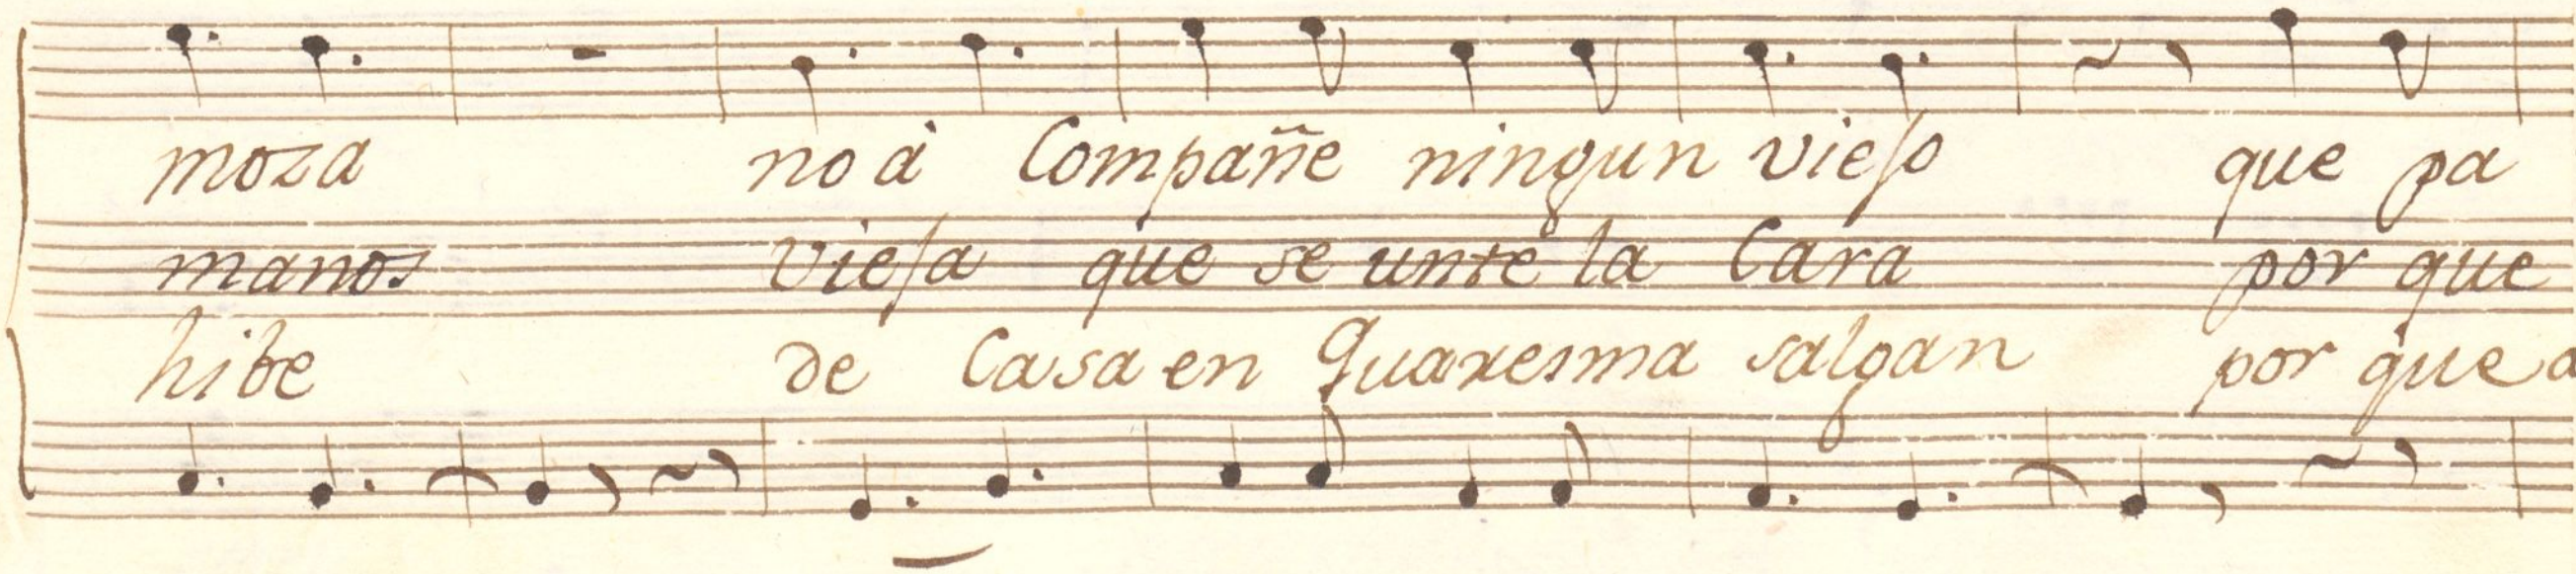 moza no à Compañe ningun viejo que pa
manos vieja que se unte la Cara por que
hibe de Casa en Quaresma salgan por que a